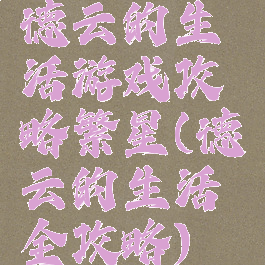 德云的生
活游戏攻
略繁星(德
云的生活
全攻略)